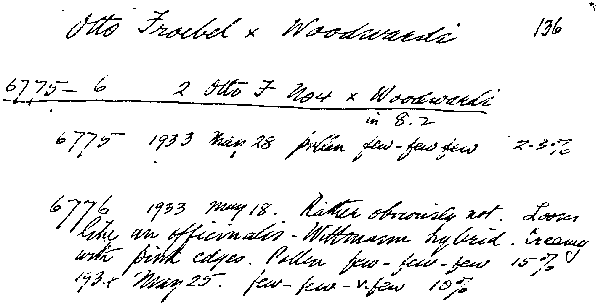 Otto Froebel x Woodwardi 136
6775-6 2 Otto F No4 x Woodwardi
in 8.2
6775 1933 May 28 pollen few-few few 2-3%
6776 1933 May 18. Rather obviously not. Looks
like an officinalis - Wittmann hybrid. Creamy
with pink edges. Pollen few-few-few 15%
May 25. few-few-v.few 10%